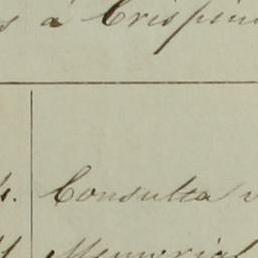 s á Crispin
4. Consulta
Memorial